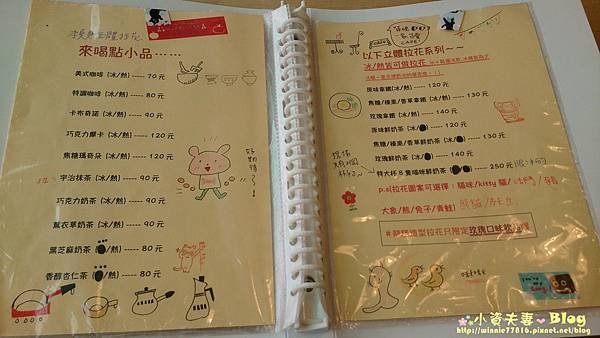 來喝點小品-----
美式咖啡 (冰/熱) ----- 70 元
特調咖啡 (冰/熱) ----- 80 元
卡布奇諾 (冰/熱) ----- 90 元
巧克力摩卡 (冰/熱) ----- 120 元
焦糖瑪奇朵 (冰/熱) ----- 120 元
宇治抹茶 (冰/熱) ----- 90 元
巧克力奶茶 (冰/熱) ----- 90 元
薰衣草奶茶 (冰/熱) ----- 90 元
黑芝麻奶茶 (/熱) ----- 120 元
香醇杏仁茶 (/熱) ----- 120 元
好期待
CAFE
以下立體拉花系列~~
冰/熱皆可做拉花
原味拿鐵 (冰/熱) ----- 120 元
焦糖/榛果/香草拿鐵 (冰/熱) ----- 130 元
玫瑰拿鐵 (冰/熱) ----- 140 元
原味鮮奶茶 (冰/) ----- 120 元
焦糖/榛果/香草鮮奶茶 (冰/) ----- 130 元
玫瑰鮮奶茶 (冰/) ----- 140 元
特大杯 8 隻喵咪鮮奶茶 ----- 250 元
p.s拉花圖案可選擇:貓咪/kitty 貓/
大象/熊/兔子/青蛙/
造型拉花只限定玫瑰口味
小資夫妻 Blog
http://winnie77816.pixnet.net/blog